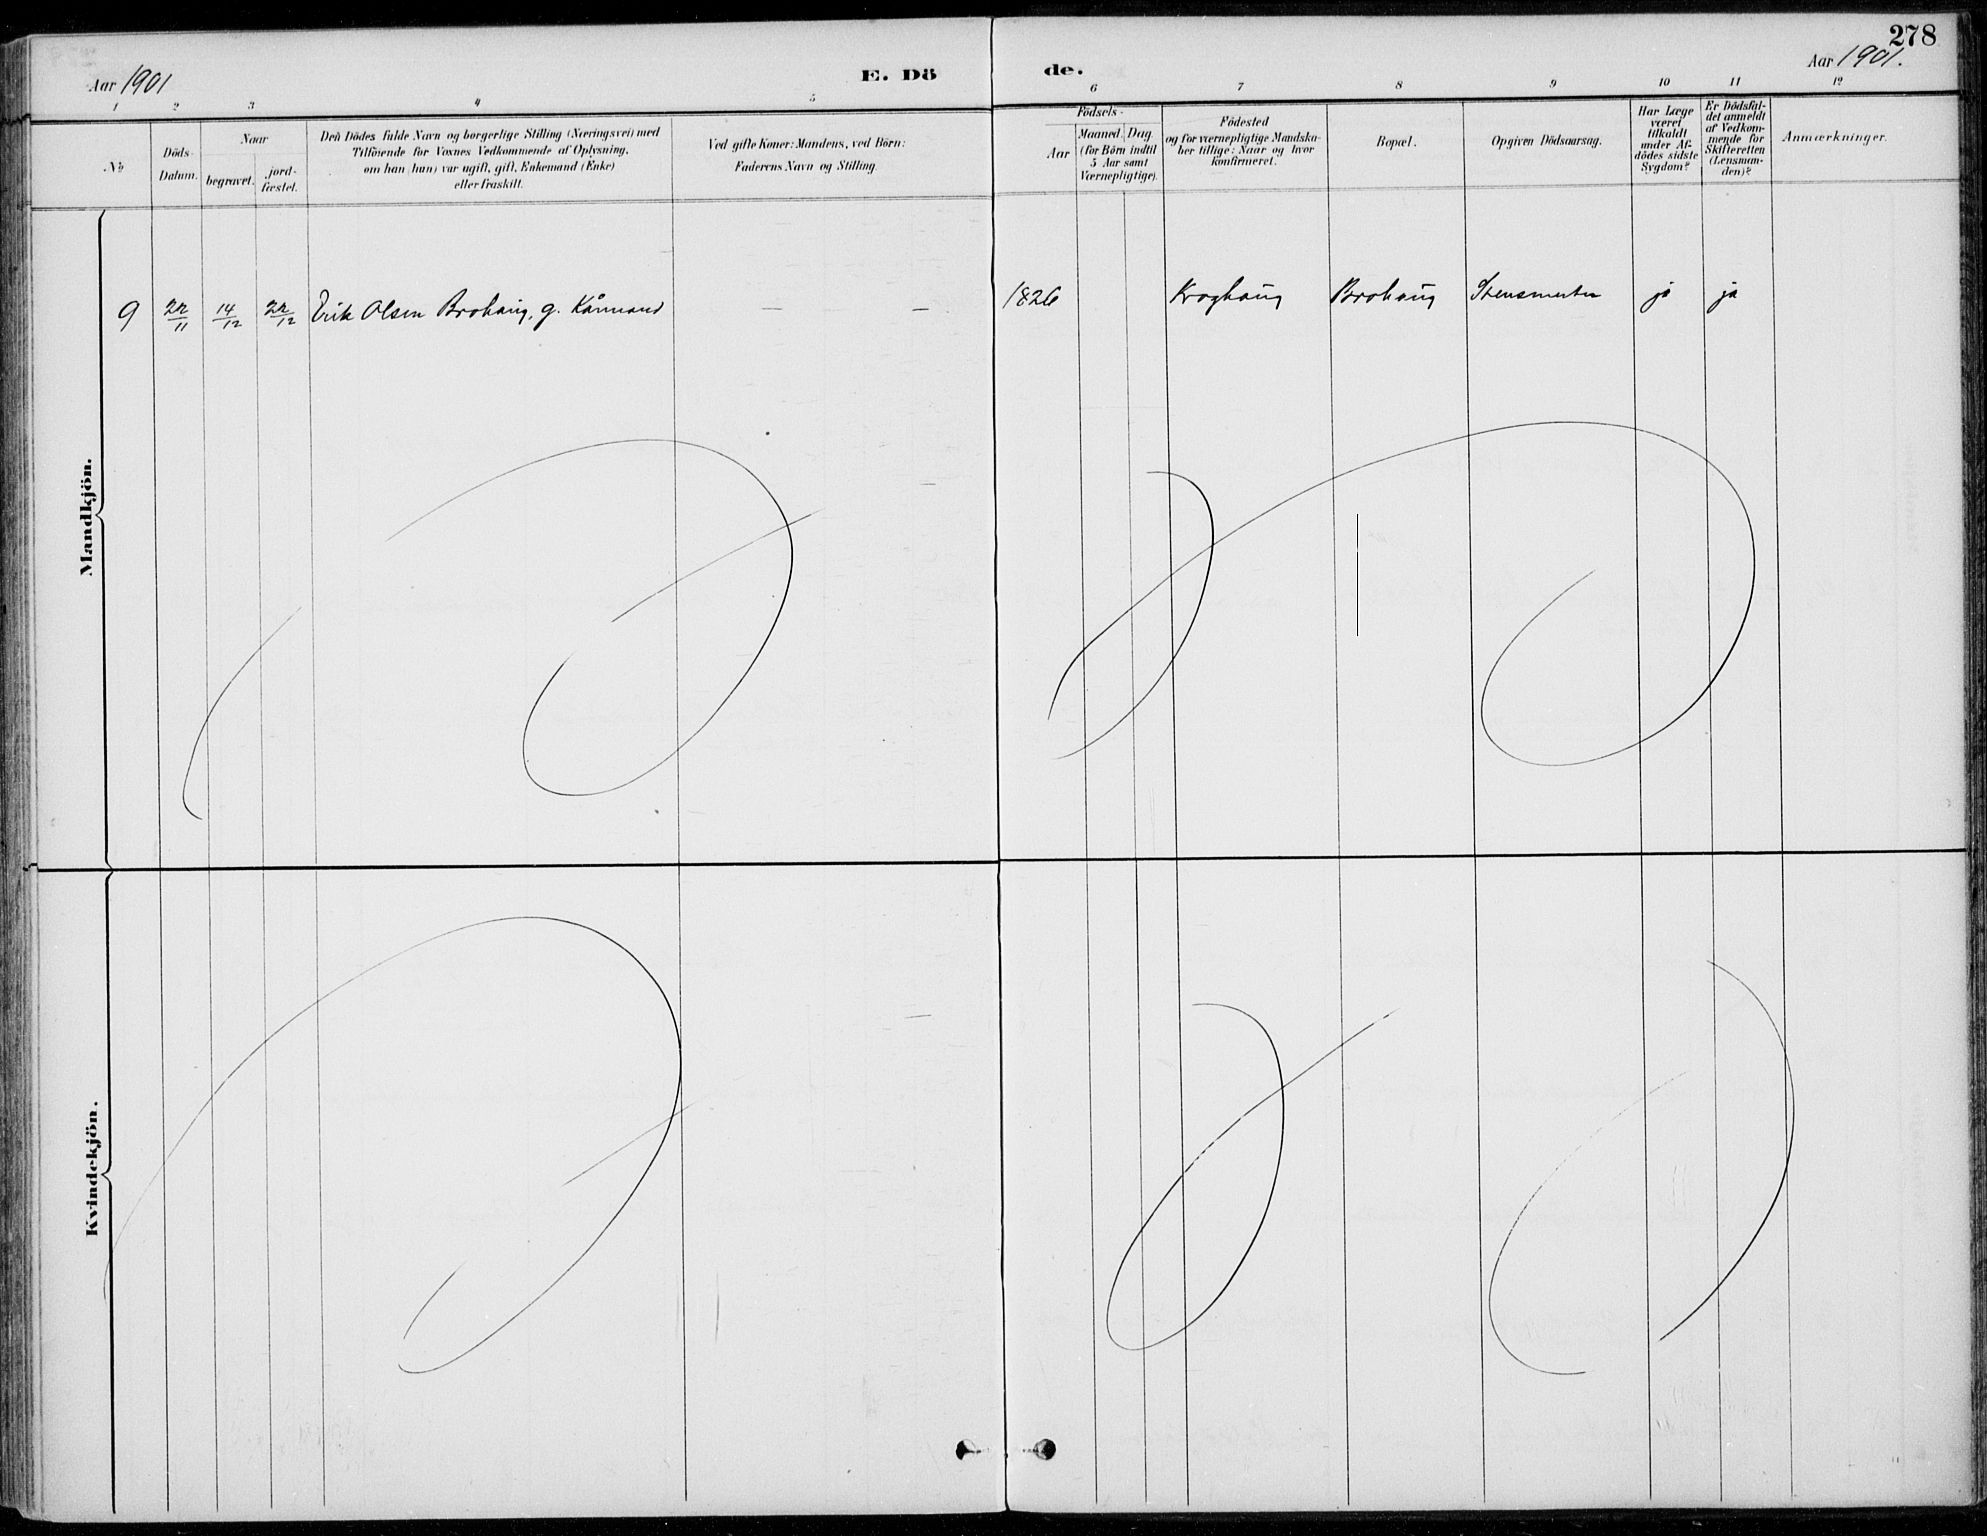 278
Aar 1901
E. Dö
de.
Aar 1901.
1 2 3 4 5 6 7 8 9 10 11 12
No
Döds-
Datum.
Naar
begravet.
jord-
fæstet.
Den Dödes fulde Navn og borgerlige Stilling (Næringsvei) med
Tilföiende for Voxnes Vedkommende af Oplysning,
om han (hun) var ugift, gift, Enkemand (Enke)
eller fraskilt.
Ved gifte Koner: Mandens, ved Börn:
Faderens Navn og Stilling.
Födsels-
Aar
Maaned. Dag.
(for Börn indtil
5 Aar samt
Værnepligtige).
Födested
og for værnepligtige Mandska-
ber tillige: Naar og hvor
konfirmeret.
Bopæl.
Opgiven Dödsaarsag.
Har Læge
været
tilkaldt
under Af-
dödes sidste
Sygdom?
Er Dödsfal-
det anmeldt
af Vedkom-
mende for
Skifteretten
(Lensman-
den)?
Anmærkninger.
Mandkjön.
9 22/11 14/12 22/12 Erik Olsen Brohaug, g. Kårmand — — 1826 Kroghaug Brohaug Stensmerter ja ja
Kvindekjön.